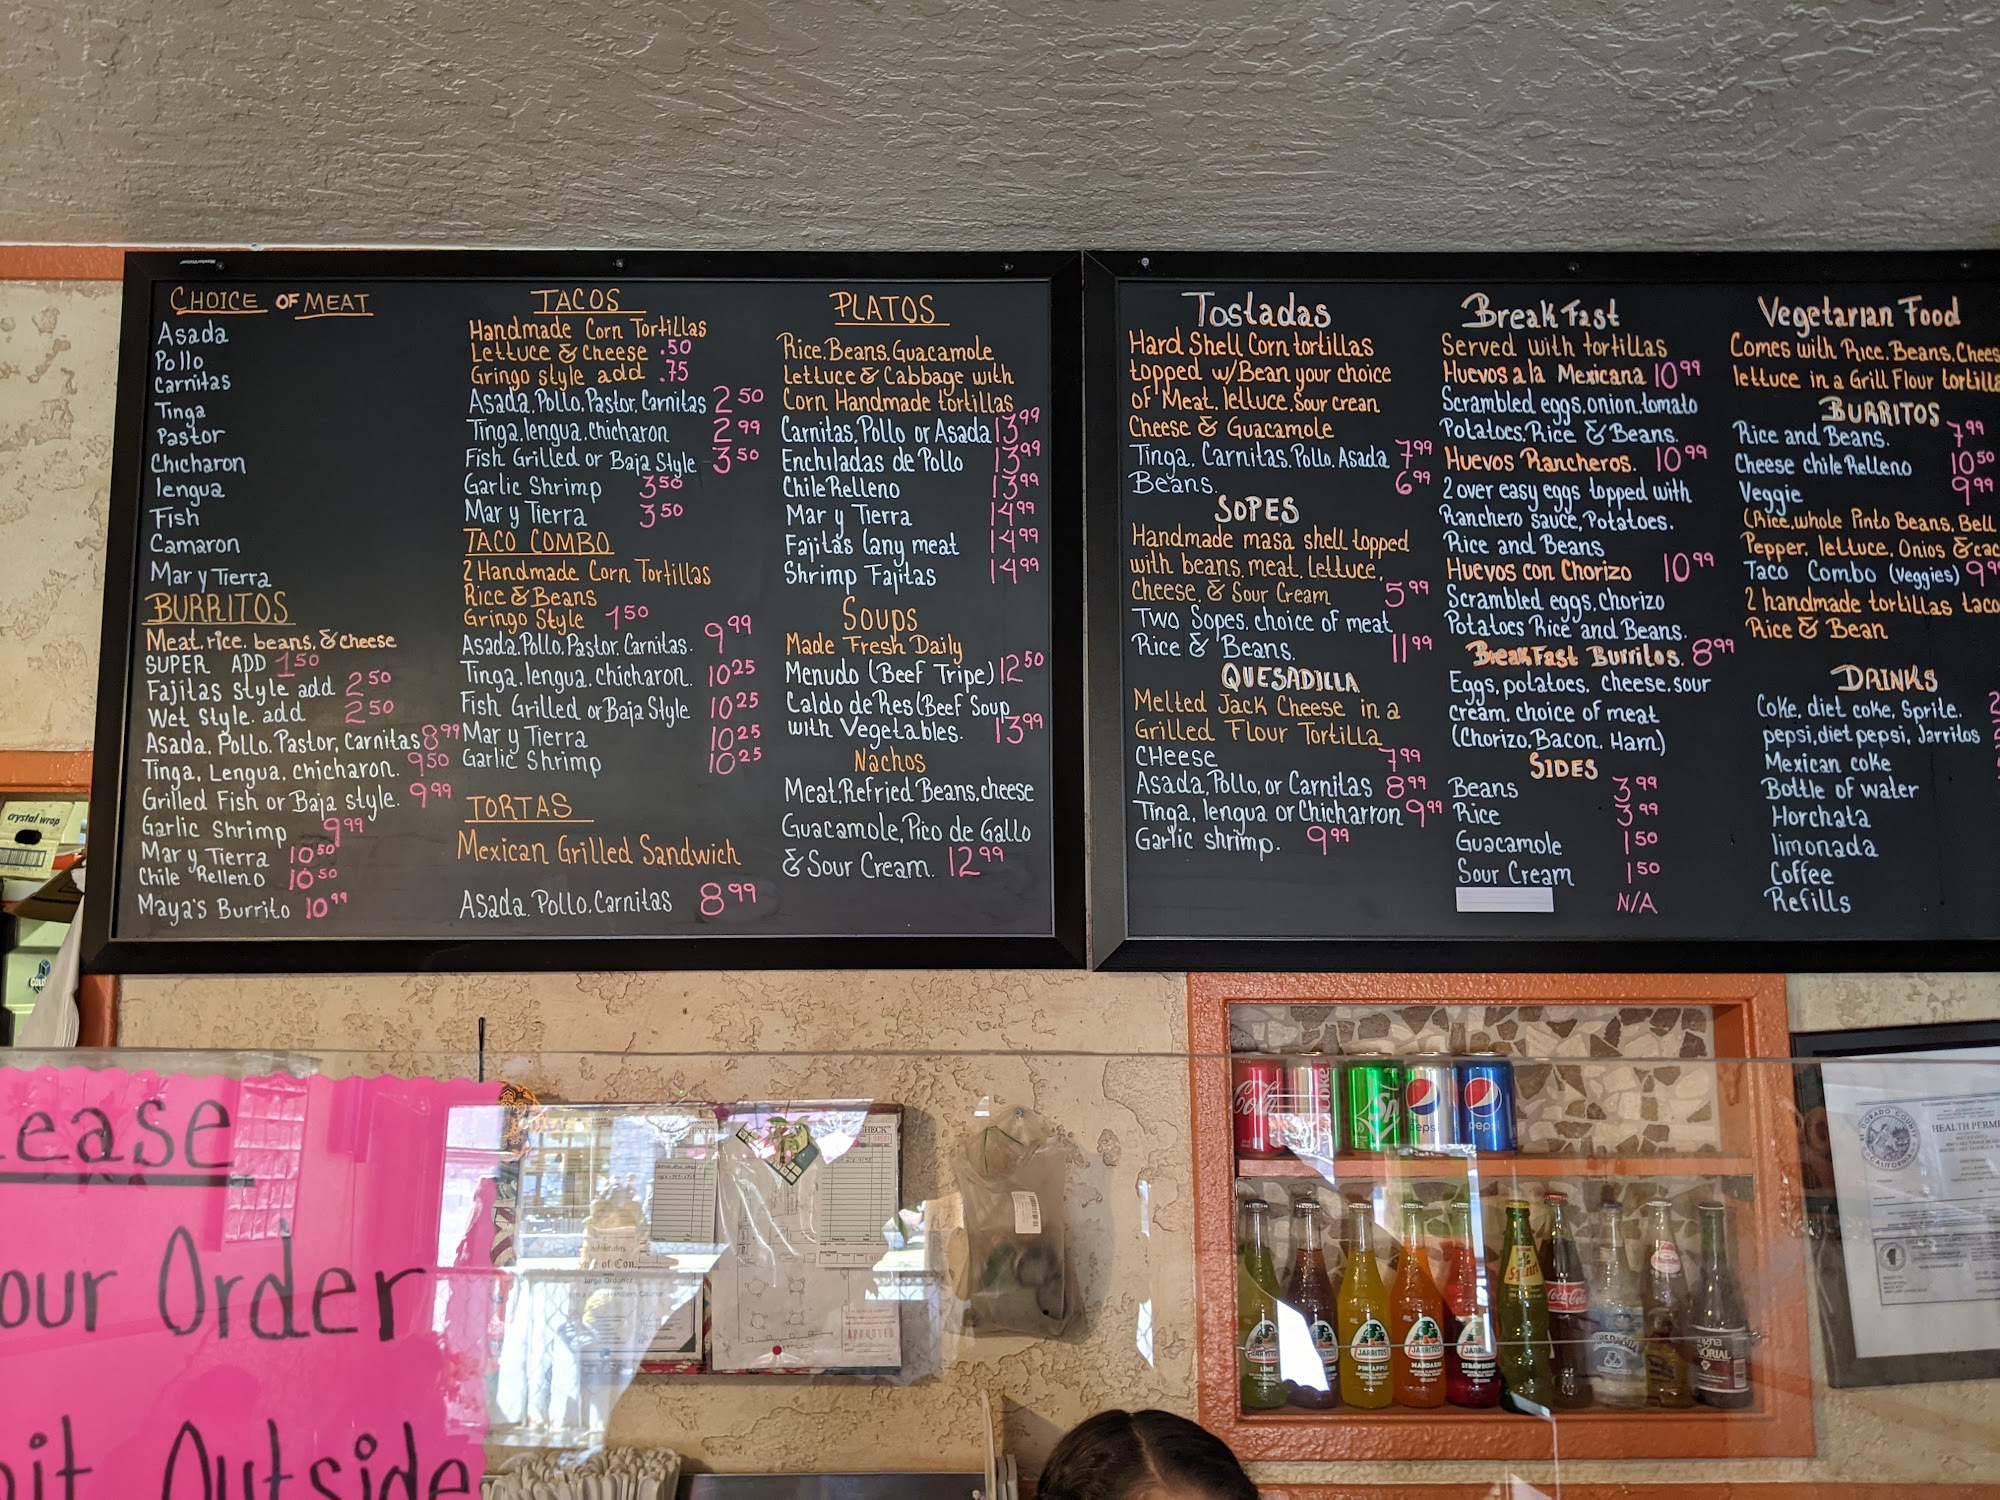 CHOICE OF MEAT
Asada
Pollo
Carnitas
Tinga
Pastor
Chicharon
lengua
Fish
Camaron
Mar y Tierra
BURRITOS
Meat, rice, beans, & cheese
SUPER ADD 1 50
Fajitas style add 2 50
Wet style. add 2 50
Asada, Pollo, Pastor, Carnitas 8 99
Tinga, Lengua, chicharon. 9 50
Grilled Fish or Baja style. 9 99
Garlic Shrimp 9 99
Mar y Tierra 10 50
Chile Relleno 10 50
Maya's Burrito 10 99
TACOS
Handmade Corn Tortillas
Lettuce & Cheese .50
Gringo style add .75
Asada, Pollo, Pastor, Carnitas 2 50
Tinga, lengua, chicharon 2 99
Fish Grilled or Baja Style 3 50
Garlic Shrimp 3 50
Mar y Tierra 3 50
TACO COMBO
2 Handmade Corn Tortillas
Rice & Beans
Gringo Style 1 50
Asada, Pollo, Pastor, Carnitas. 9 99
Tinga, lengua, chicharon. 10 25
Fish Grilled or Baja Style 10 25
Mar y Tierra 10 25
Garlic Shrimp 10 25
TORTAS
Mexican Grilled Sandwich
Asada, Pollo, Carnitas 8 99
PLATOS
Rice, Beans, Guacamole
Lettuce & Cabbage with
Corn Handmade tortillas
Carnitas, Pollo or Asada 13 99
Enchiladas de Pollo 13 99
Chile Relleno 13 99
Mar y Tierra 14 99
Fajitas (any meat 14 99
Shrimp Fajitas 14 99
Soups
Made Fresh Daily
Menudo (Beef Tripe) 12 50
Caldo de Res (Beef Soup
with Vegetables. 13 99
Nachos
Meat, Refried Beans, cheese
Guacamole, Pico de Gallo
& Sour Cream. 12 99
Tostadas
Hard Shell Corn tortillas
topped w/Bean your choice
of Meat, lettuce, Sour crean
Cheese & Guacamole
Tinga, Carnitas, Pollo, Asada 7 99
Beans. 6 99
SOPES
Handmade masa shell topped
with beans, meat, lettuce,
Cheese, & Sour Cream 5 99
Two Sopes, choice of meat
Rice & Beans. 11 99
QUESADILLA
Melted Jack Cheese in a
Grilled Flour Tortilla
CHeese 7 99
Asada, Pollo, or Carnitas 8 99
Tinga, lengua or Chicharron 9 99
Garlic shrimp. 9 99
BreakFast
Served with tortillas
Huevos a la Mexicana 10 99
Scrambled eggs, onion, tomato
Potatoes, Rice & Beans.
Huevos Rancheros. 10 99
2 over easy eggs topped with
Ranchero sauce, Potatoes.
Rice and Beans
Huevos con Chorizo 10 99
Scrambled eggs, Chorizo
Potatoes Rice and Beans.
BreakFast Burritos. 8 99
Eggs, potatoes, cheese, sour
cream, choice of meat
(Chorizo, Bacon, Ham)
SIDES
Beans 3 99
Rice 3 99
Guacamole 1 50
Sour Cream 1 50
N/A
Vegetarian Food
Comes with Rice, Beans, Chees
lettuce in a Grill Flour tortilla
BURRITOS
Rice and Beans. 7 99
Cheese chile Relleno 10 50
Veggie 9 99
(Rice, whole Pinto Beans, Bell
Pepper, lettuce, Onios & cac
Taco Combo (veggies) 9 99
2 handmade tortillas taco
Rice & Bean
DRINKS
Coke, diet coke, Sprite. 2
pepsi, diet pepsi, Jarritos
Mexican coke
Bottle of water
Horchata
limonada
Coffee
Refills
crystal wrap
ease
our Order
it Outside
CHECK
APPROVED
Coke
pepsi
pepsi
JARRITOS
LIME
JARRITOS
PINEAPPLE
JARRITOS
MANDARIN
STRAWBERRY
Squirt
Coca-Cola
HEALTH PERMI
CALIFORNIA